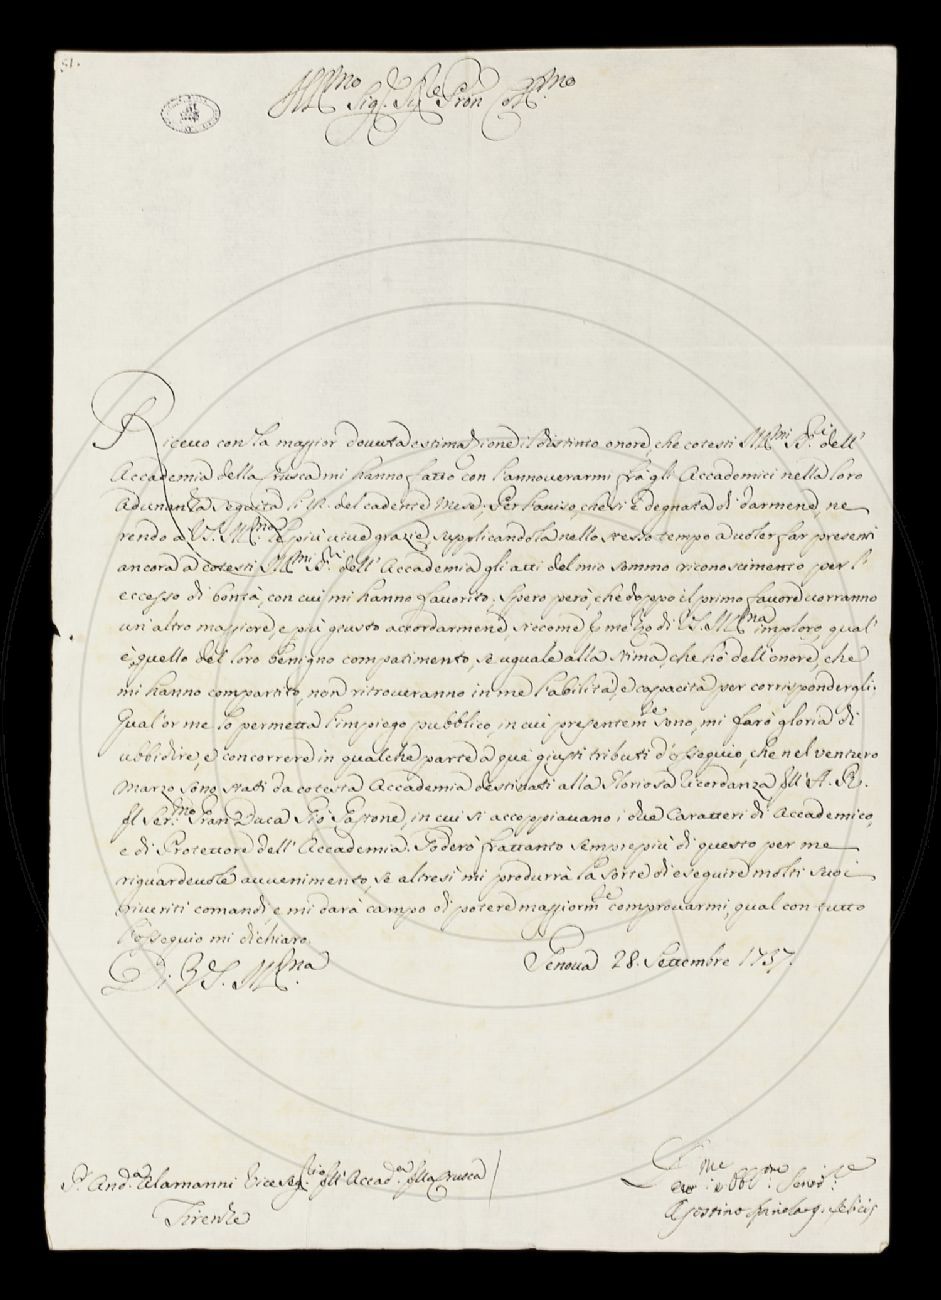 51.
Ill.mo Sig.r Sig.re Pron Col.mo
Ricevo con la maggior dovuta estimazione il distinto onore, che cotesti Ill.mi SS.ri dell'
Accademia della Crusca mi hanno fatto con l'annoverarmi frà gli Accademici nella loro
Adunanza seguita li del cadente Mese; Per l'aviso, che si è degnata di darmene, ne
rendo a V.S. Ill.ma le più vive grazie, supplicandola nello stesso tempo a voler far presenti
ancora à cotesti Ill.mi SS.ri dell'Accademia gli atti del mio sommo riconoscimento per l'
eccesso di bontà, con cui mi hanno favorito; Spero però, che doppo il primo favore vorranno
un'altro maggiore, e più giusto accordarmene, siccome per mezzo di V.S. Ill.ma imploro, qual'
è, quello del loro benigno compatimento, se uguale alla stima, che hò dell'onore, che
mi hanno compartito, non ritroveranno in me l'abilità, e capacità per corrispondergli.
Qual'or me lo permetta l'impiego pubblico, in cui presentem.te sono, mi farò gloria di
ubbidire, e concorrere in qualche parte a que' giusti tributi d'ossequio, che nel venturo
Marzo sono stati da cotesta Accademia destinati alla Gloriosa Ricordanza dell'A. R.
del Ser.mo Gran Duca Gio Gastone, in cui si accoppiavano i due Caratteri di Accademico,
e di Protettore dell'Accademia. Goderò frattanto sempre più di questo per me
riguardevole avvenimento, se altresì mi produrrà la sorte di eseguire molti suoi
riveriti comandi, e mi darà campo di potere maggiorm.te comprovarmi, qual con tutto
l'ossequio mi dichiaro.
Di V.S. Ill.ma
Genova 28. Settembre 1737.
S.r And.a Alamanni Vice Seg.rio dell'Accad.a della Crusca
Firenze
D.mo obbl.mo Serv.re
Agostino Spinola q. Felicis